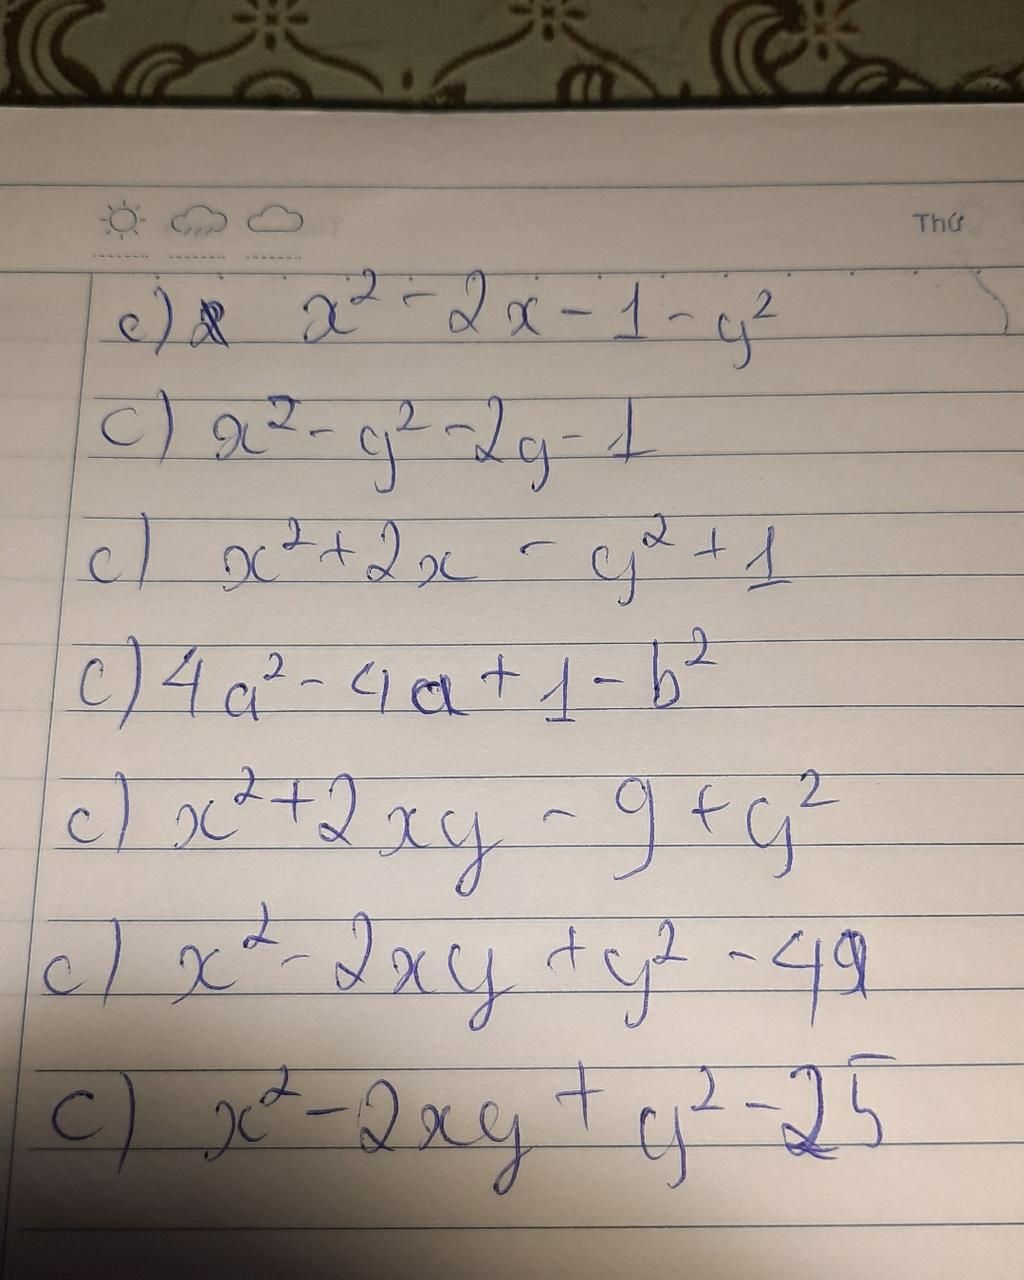 Thứ
c) x² - 2x - 1 - y²
c) x² - y² - 2y - 1
c) x² + 2x - y² + 1
c) 4a² - 4a + 1 - b²
c) x² + 2xy - 9 + y²
c) x² - 2xy + y² - 49
c) x² - 2xy + y² - 25